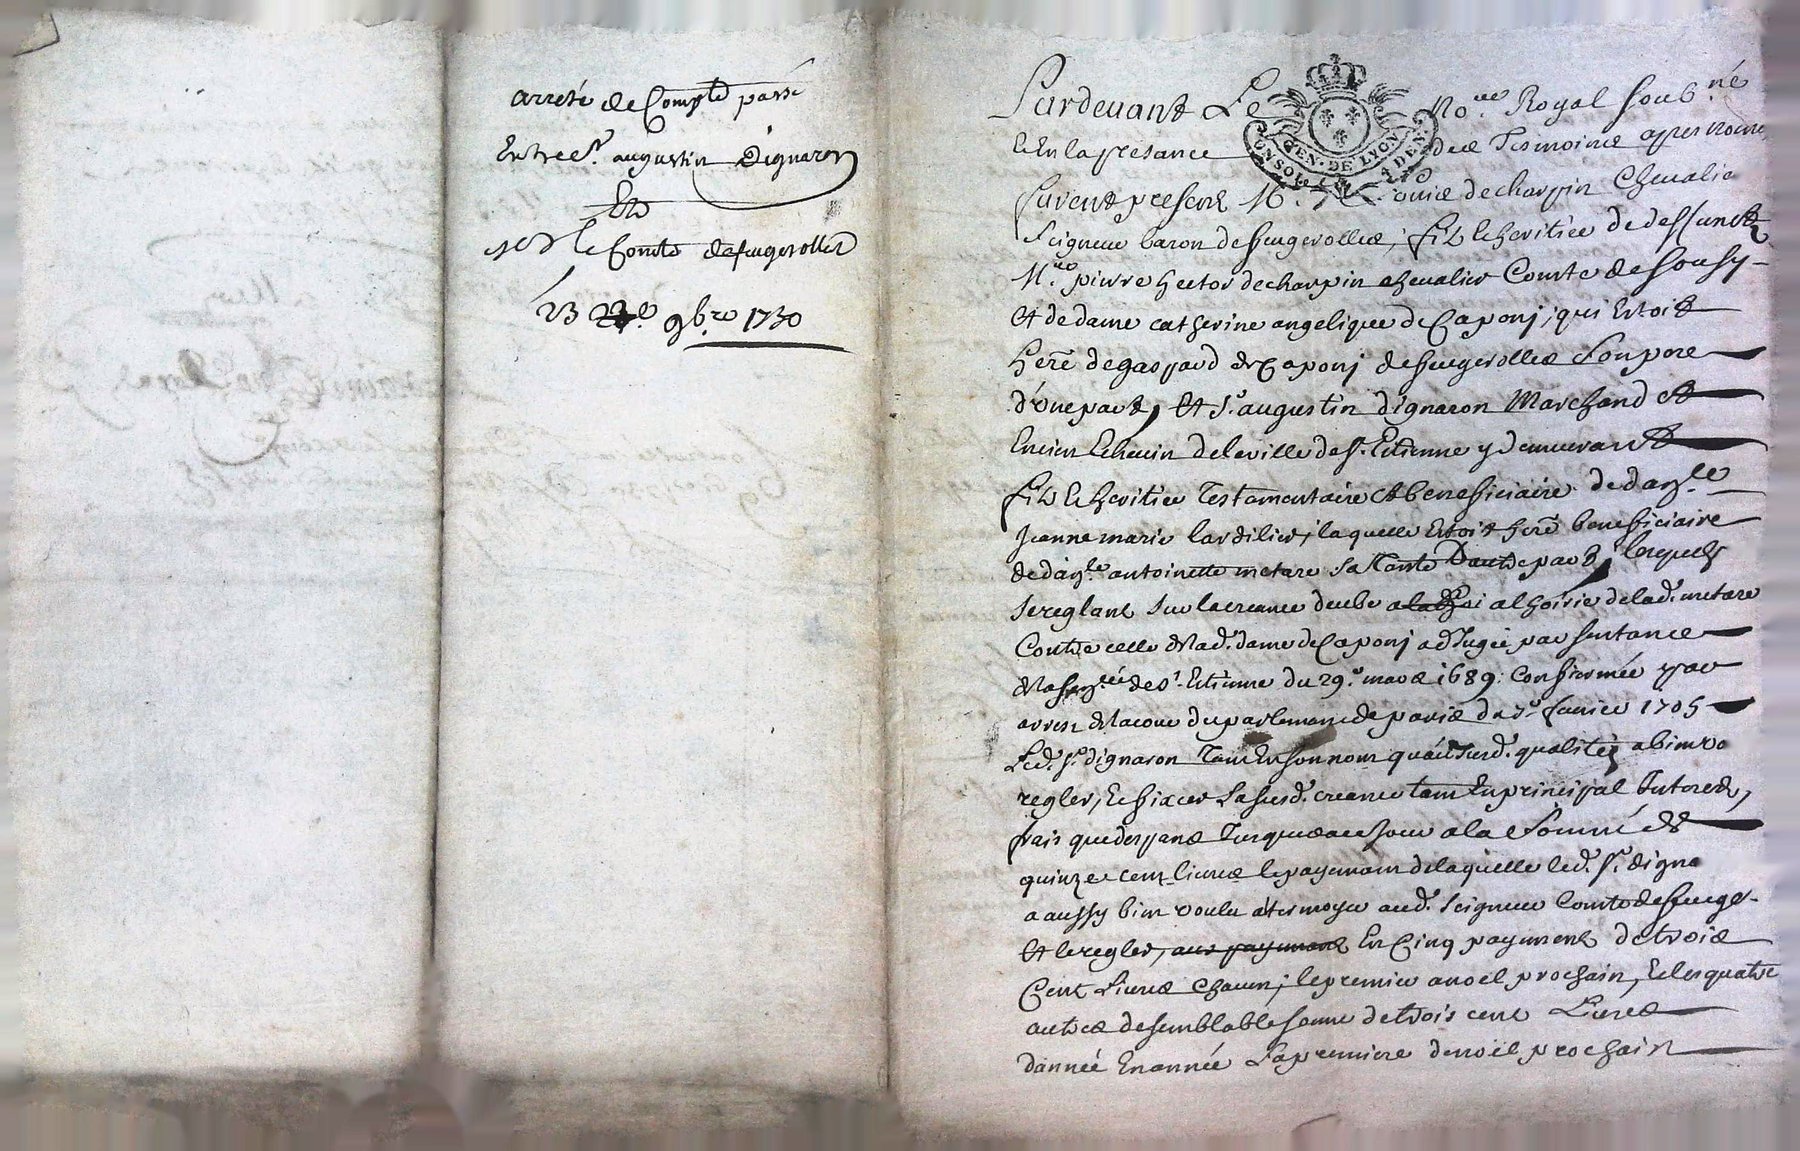 arresté de Compte passé
Entre Sr. augustin Dignaron
Et
le Comte defeugerolles
23 9bre 1730
Pardevant Le Nore. Royal soubné
& En la presance des Tesmoins apres nommés
furent presents Mre. Louis de charpin Chevalier
Seigneur baron de feugerolles, fils & heritier de deffunct
Mre. pierre hector de charpin chevalier Comte de Sousy
Et de dame catherine angelique de Caponj, qui Estoit
here. de gaspard de Caponj de feugerolles son pere
d'une part, Et Sr. augustin dignaron Marchand Et
Encien Echevin de la ville de St. Etienne y demeurant
fils & heritier Testamentaire & beneficiaire de dazlle
Jeanne marie lardilier, laquelle Estoit here. beneficiaire
de dazlle. antoinette metare sa tante Dautre part, lesquels
se reglant sur la creance deube a l'hoirie de lad. metare
Contre celle de lad. dame de Caponj adjugée par sentance
de St. Etienne du 29e. mars 1689. Confirmée par
arrest de la cour du parlement de paris du 7e. janvier 1705
Led. Sr. dignaron Tant En son nom qu'aux susd. qualités a bien voulu
regler, & fixer la susd. creance tant En principal Interets,
frais que despans jusques a ce jour a la somme de
quinze cent livres le payement de laquelle led. Sr. digna
a aussy bien voulu atermoyer aud. seigneur Comte de feuger-
Et le regler, aux payements En Cinq payements de trois
Cent Livres chacun, le premier a noel prochain, & les quatre
autres de semblable somme de trois cent Livres
d'année En année La premiere de noel prochain
GEN. DE LYON